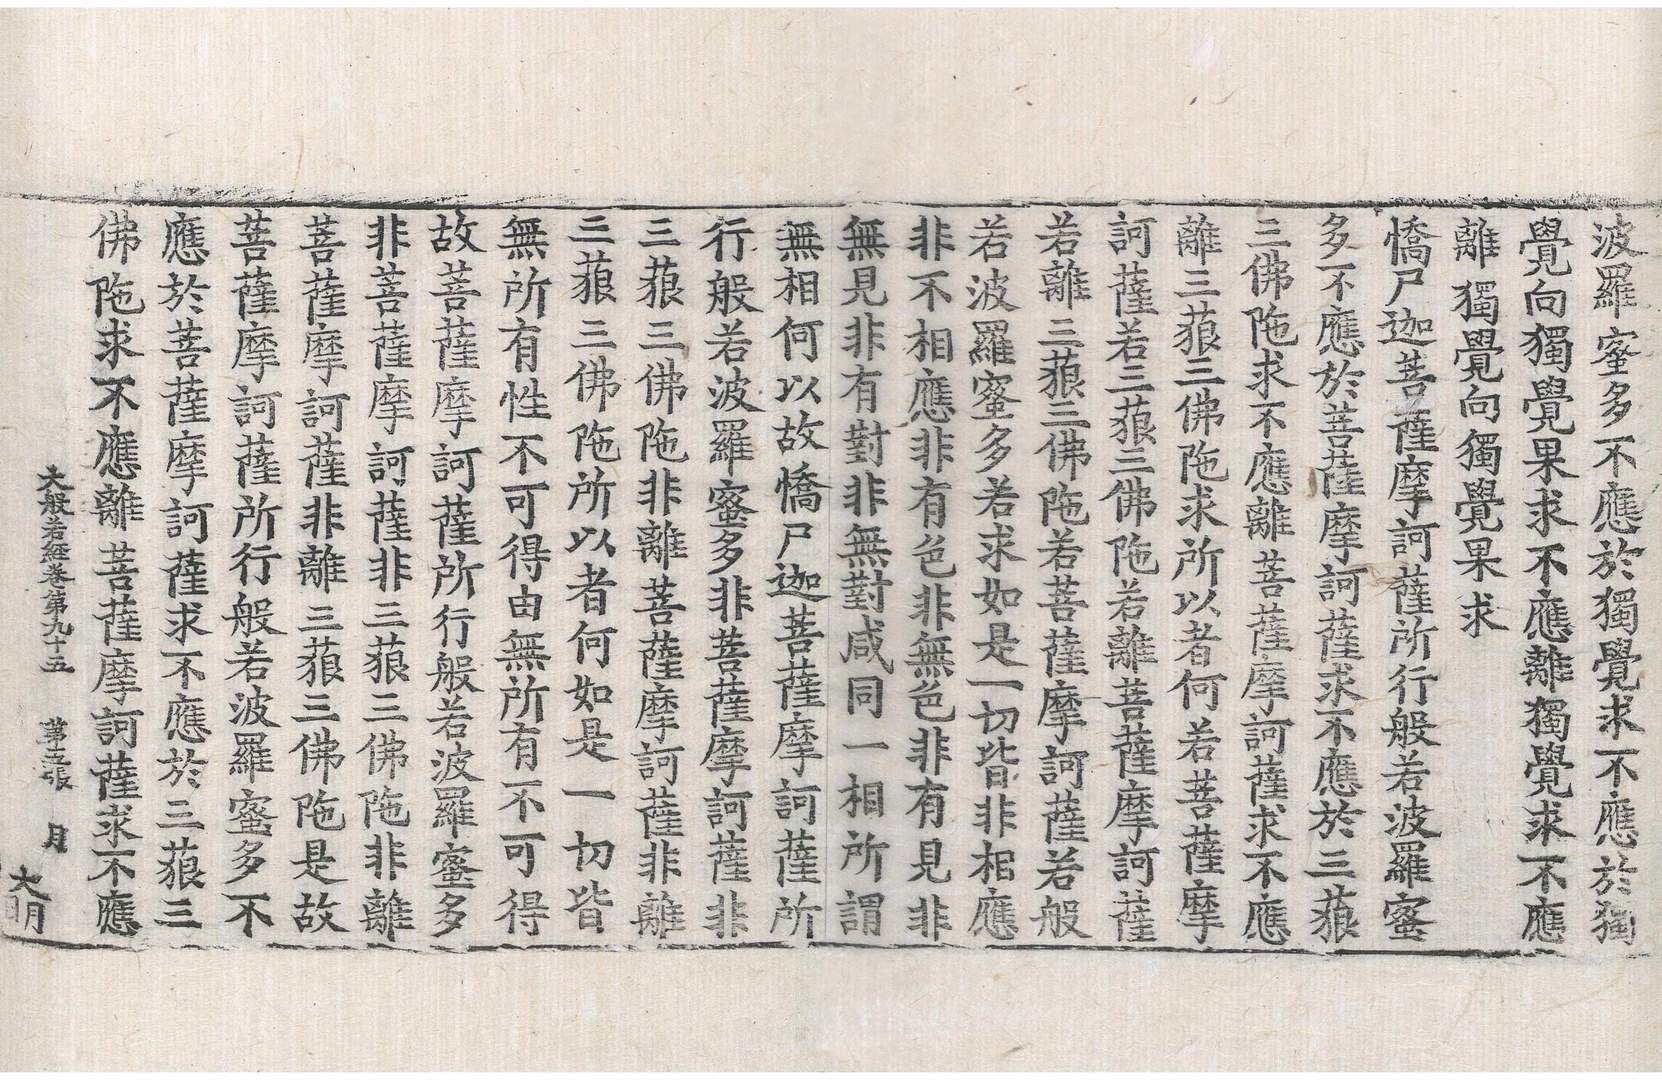 波羅蜜多不應於獨覺求不應於獨
覺向獨覺果求不應離獨覺求不應
離獨覺向獨覺果求
憍尸迦菩薩摩訶薩所行般若波羅蜜
多不應於菩薩摩訶薩求不應於三藐
三佛陁求不應離菩薩摩訶薩求不應
離三藐三佛陁求所以者何若菩薩摩
訶薩若三藐三佛陁若離菩薩摩訶薩
若離三藐三佛陁若菩薩摩訶薩若般
若波羅蜜多若求如是一切皆非相應
非不相應非有色非無色非有見非
無見非有對非無對咸同一相所謂
無相何以故憍尸迦菩薩摩訶薩所
行般若波羅蜜多非菩薩摩訶薩非
三藐三佛陁非離菩薩摩訶薩非離
三藐三佛陁所以者何如是一切皆
無所有性不可得由無所有不可得
故菩薩摩訶薩所行般若波羅蜜多
非菩薩摩訶薩非三藐三佛陁非離
菩薩摩訶薩非離三藐三佛陁是故
菩薩摩訶薩所行般若波羅蜜多不
應於菩薩摩訶薩求不應於三藐三
佛陁求不應離菩薩摩訶薩求不應
大般若經卷第九十五 第張 月
大明